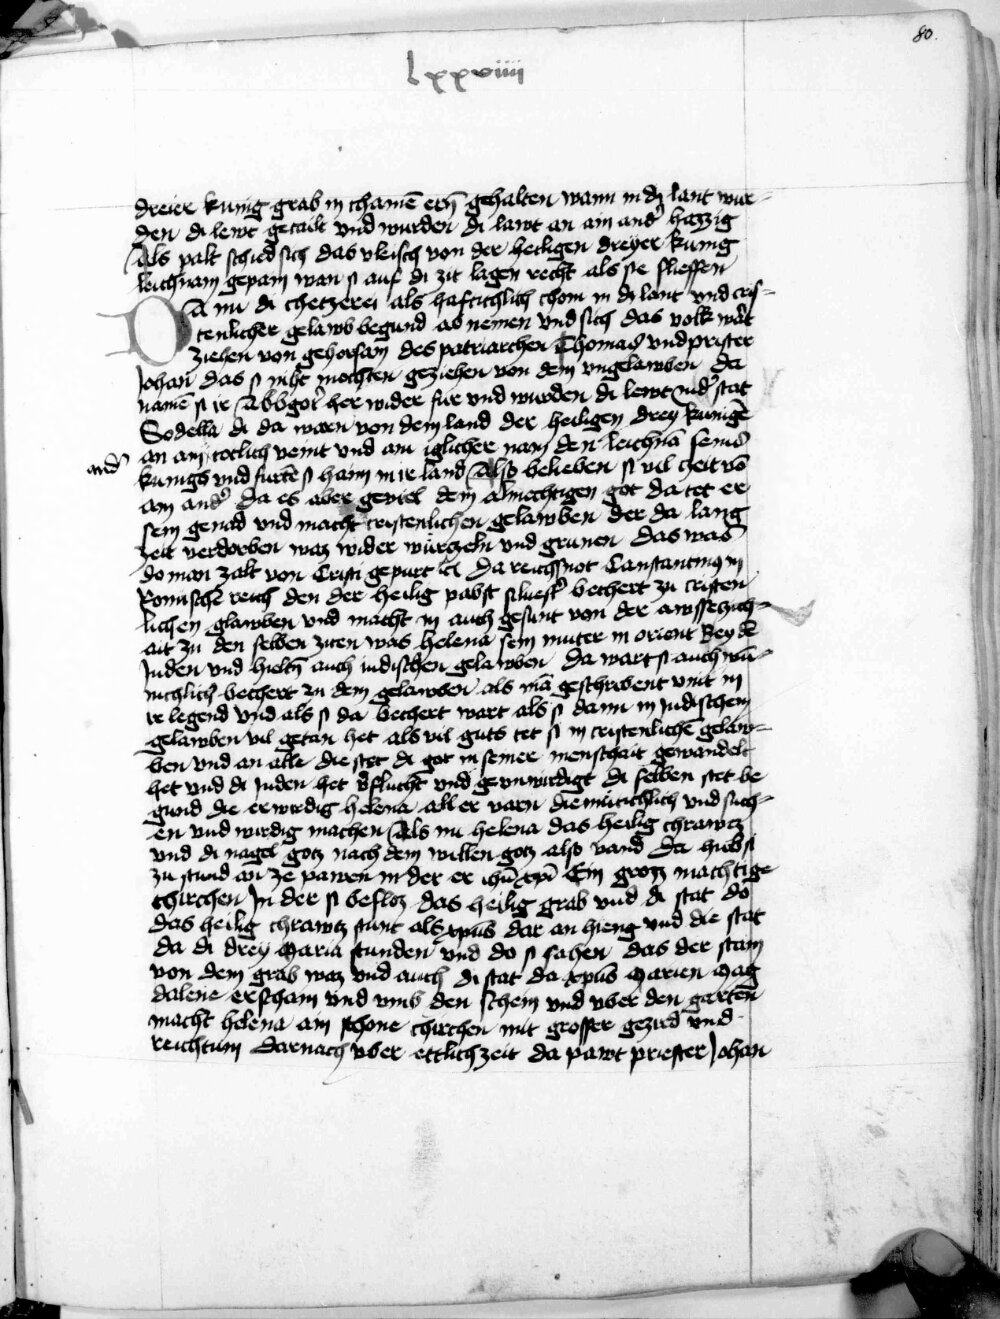 80.
lxxviiii
dreier kunig grab in chainē ern̄ gehalten wann in dz lant wur-
den di lewt getailt vnd wurden di lawt an ain andˀ hazzig
Als palt schied sich das vleisch von der heiligen dreyer kunig
leichnam gepain wan si auf di zit lagen recht als sie slieffen
DA nu di chetzerei als haftichlich chom in dz lant vnd cris-
tenlicher gelawb begund ab nemen vnd sich das volk wart
ziehen von gehorsam des patriarchen Thomas vnd prister
Johan das si niht mochten geziehen von dem vngelawben da
namē si ir Abbgotˀ her wider fur vnd wurden di lewt in dˀ stat
Sodella di da waren von dem land der heiligen drey kunigē
an ain totlich veint vnd ain iglicher nam den leichnā seins
andˀ
kunigs vnd furtē si haim in ir land Also beliben si vil cheit vō
ain andˀ Da es aber geviel dem almechtigen got da tet er
sein genad vnd macht cristenlichen gelawben der da lang
zeit verdorben waz wider wurtzeln vnd grunen Das was
do man zalt von Cristi gepurt Da reichsnot Constantinus in
Romischē reich den der heilig pabst siluestˀ bechert zu cristen
lichen glawben vnd macht in auch gesunt von der awssetzich-
ait zu den selben ziten was helena sein muter in orient Bey dē
Juden vnd hieltn̄ auch iudischen gelawben Da wart si auch wū-
nichlich bechert zu dem gelawben als mā geschribent vint in
ir legend vnd als si da bechert wart als si dann in iudischem
gelawben vil getan het als vil guts tet si in cristenlichē gelaw-
ben vnd an alle die stet di got in seiner menschait gewandelt
het vnd di Juden het v̄flucht vnd gevnwirdigt di selben stet be
gund die erwirdig helena all er varn diemutichlich vnd such-
en vnd wirdig machen Als nu helena das heilig chrawtz
vnd di nagel gotz nach dem willen gotz also vand Da hub si
zu stund an ze pawen in der er ihū xpi Ein grozz machtige
chirchen In der si besloz das heilig grab vnd di stat do
das heilig chrawtz stunt als xpus dar an hieng vnd die stat
da di drey Maria stunden vnd do si sahen das der stain
von dem grab waz vnd auch di stat da xpus Marien Mag
dalene erscham vnd vmb den schein vnd vber den garten
macht helena ain schone chirchen mit grosser gezird vnd
reichtum Darnach vber ettlich zeit da pawt priester Johan